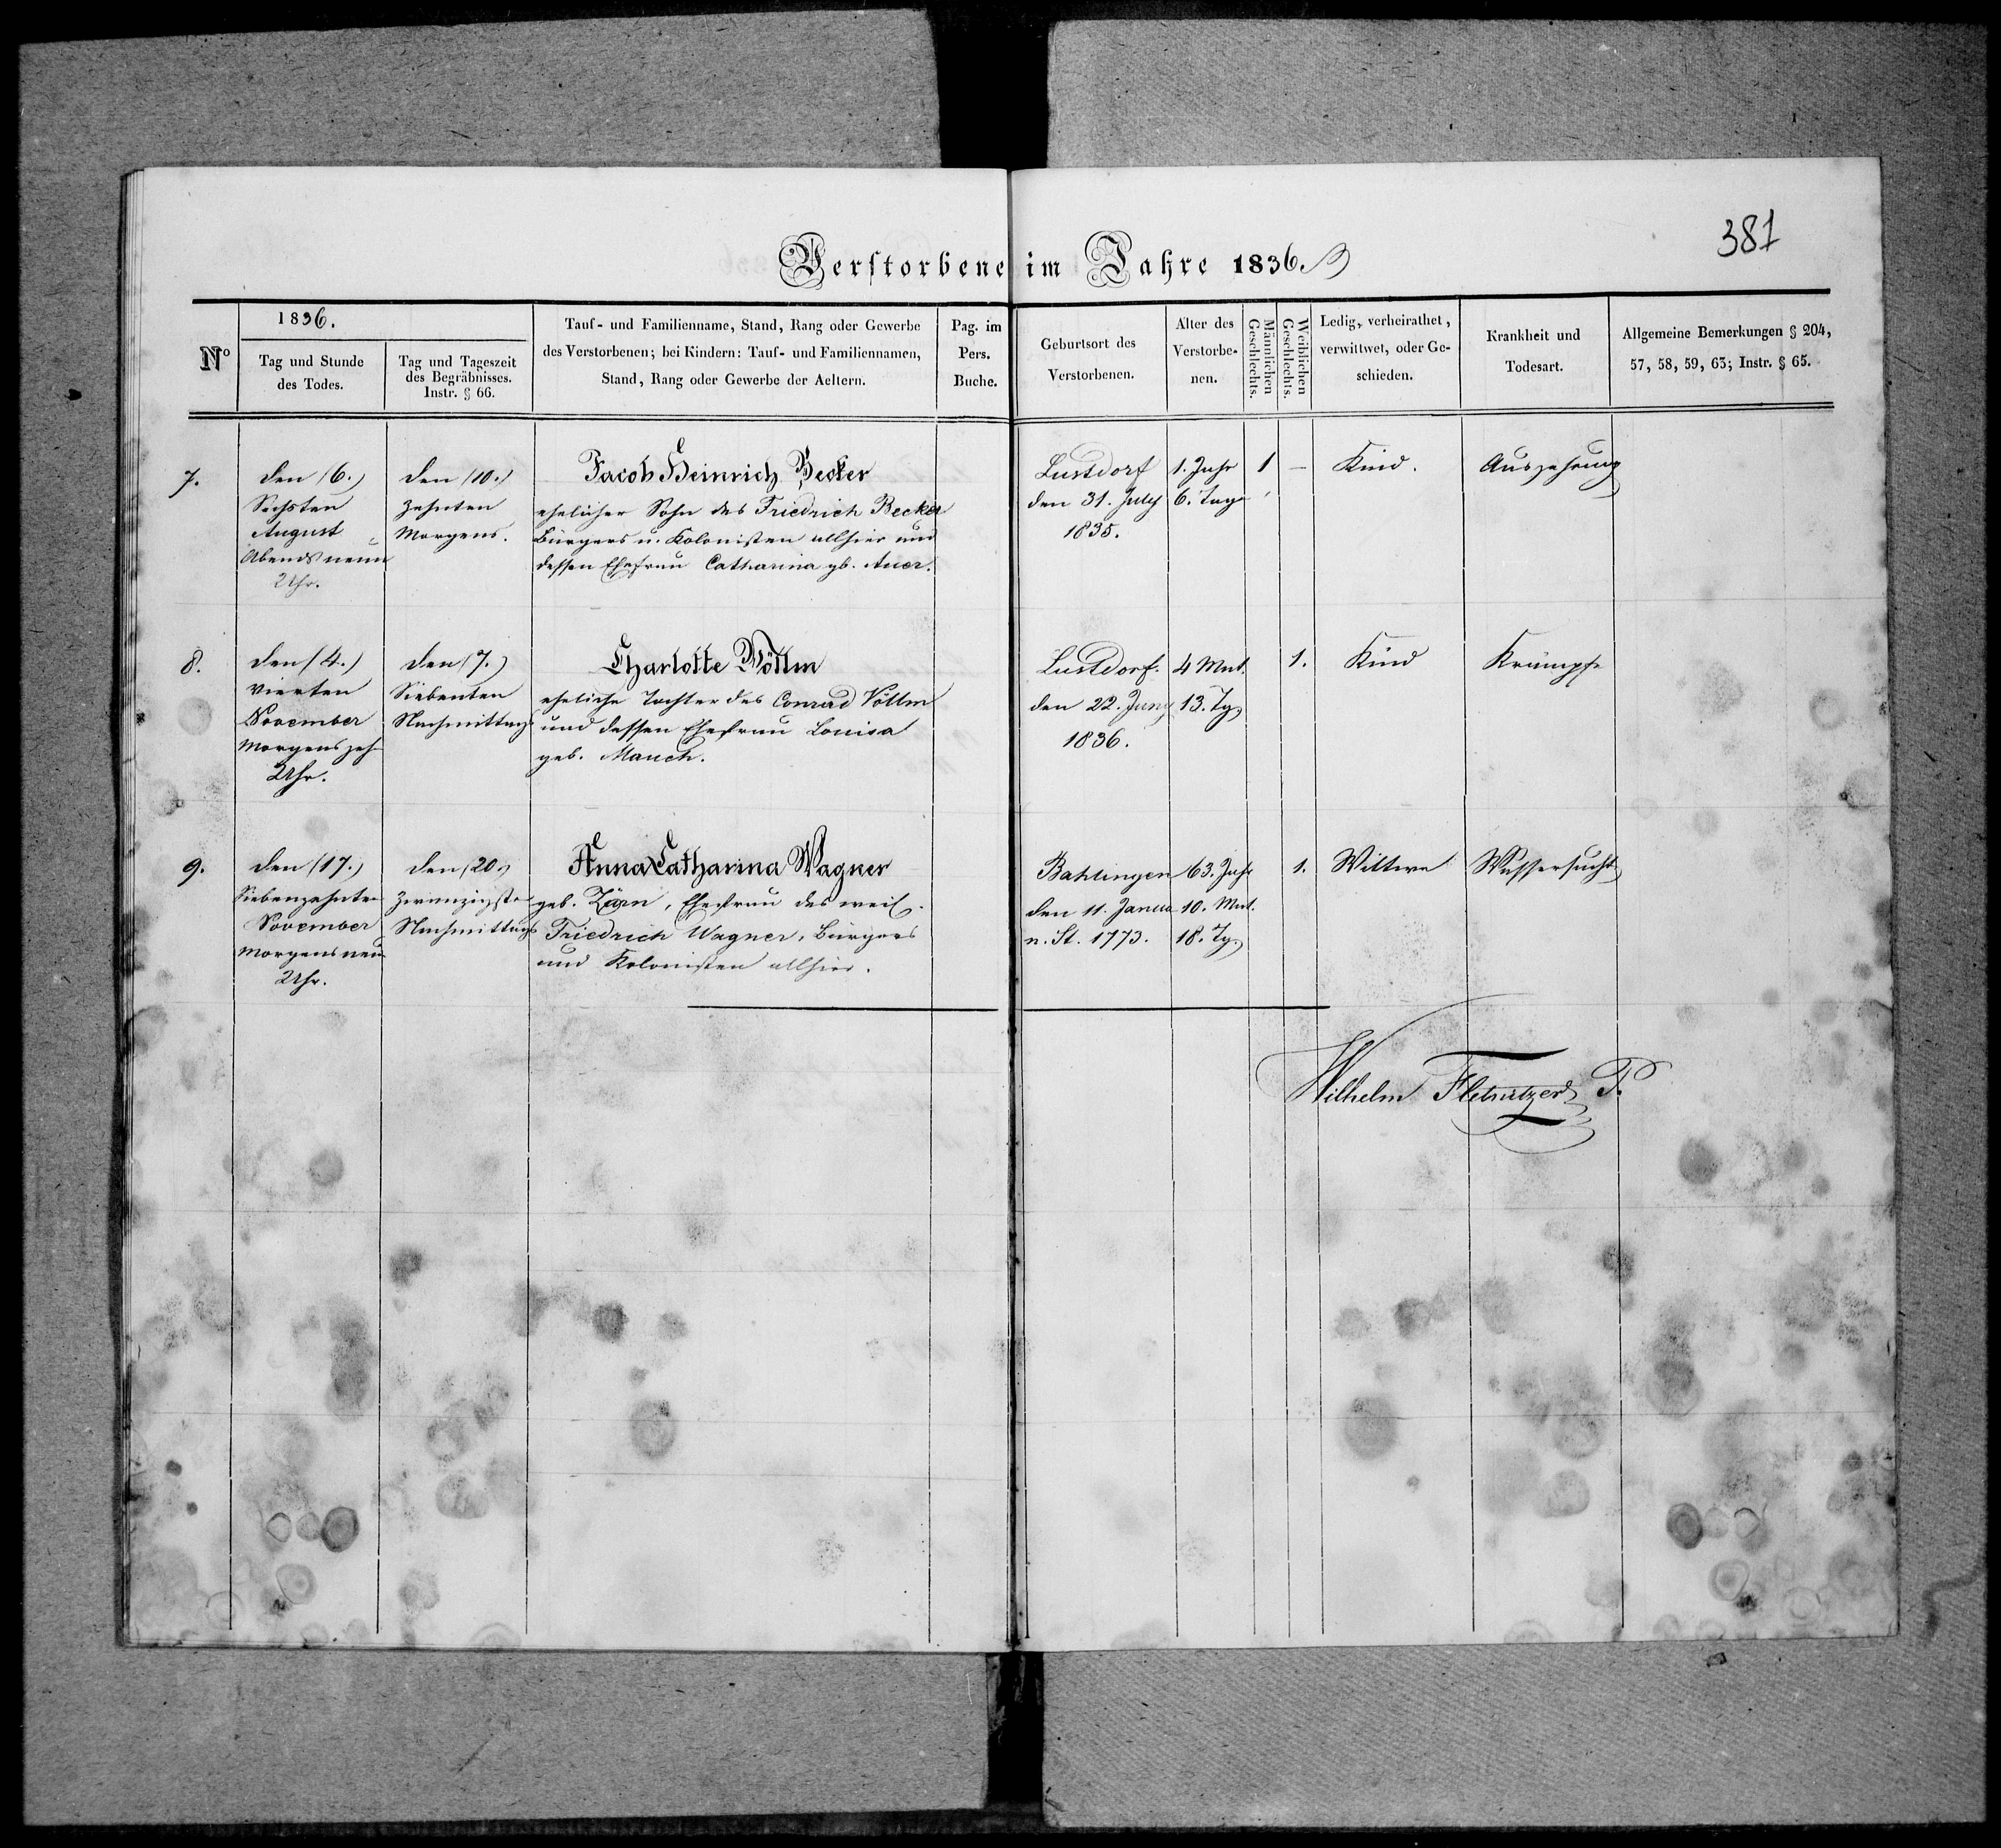 381
Verstorbene im Jahre 1836.
Nº
1836.
Tag und Stunde
des Todes.
Tag und Tageszeit
des Begräbnisses.
Instr. § 66.
Tauf- und Familienname, Stand, Rang oder Gewerbe
des Verstorbenen; bei Kindern: Tauf- und Familiennamen,
Stand, Rang oder Gewerbe der Aeltern.
Pag. im
Pers.
Buche.
Geburtsort des
Verstorbenen.
Alter des
Verstorbe-
nen.
Männlichen
Geschlechts.
Weiblichen
Geschlechts.
Ledig, verheirathet,
verwittwet, oder Ge-
schieden.
Krankheit und
Todesart.
Allgemeine Bemerkungen § 204,
57, 58, 59, 63; Instr. § 65.
7.
den (6.)
Sechsten
August
Abends neun
Uhr.
den (10.)
zehnten
Morgens.
Jacob Heinrich Becker
ehelicher Sohn des Friedrich Becker
Bürgers u. Kolonisten allhier und
dessen Ehefrau Catharina gb. Auer.
Lustdorf
den 31. July
1835.
1. Jahr
6. Tage
1
—
Kind.
Auszehrung
8.
den (4.)
vierten
November
Morgens zeh
Uhr.
den (7.)
Siebenten
Nachmittags
Charlotte Völlm
eheliche Tochter des Conrad Völlm
und dessen Ehefrau Louisa
geb. Mauch.
Lustdorf.
den 22. Juny
1836.
4 Mnt.
13. Tg.
1.
Kind
Krämpfe
9.
den (17.)
Siebenzehnten
November
Morgens neun
Uhr.
den (20.)
Zwanzigsten
Nachmittags
Anna Catharina Wagner
geb. Zörn, Ehefrau des weil.
Friedrich Wagner, Bürgers
und Kolonisten allhier.
Bahlingen
den 11. Janua
n. St. 1773.
63. Jahr
10. Mnt.
18. Tg.
1.
Wittwe
Wassersucht
Wilhelm Fletnitzer P.